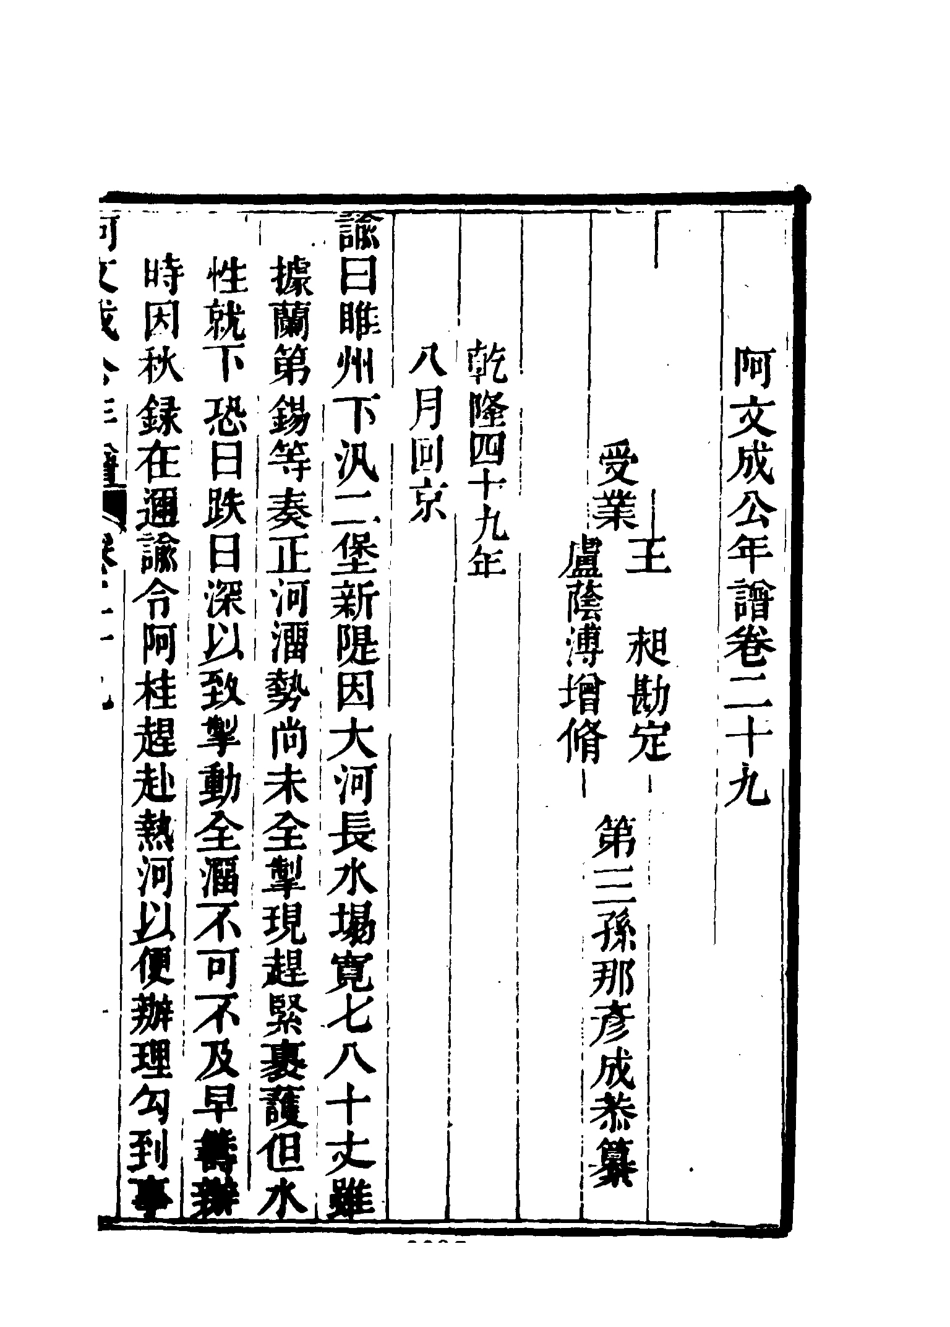 阿文成公年譜卷二十九
受業
王　昶勘定
盧蔭溥增脩
第三孫那彥成恭纂
乾隆四十九年
八月回京
諭曰睢州下汛二堡新隄因大河長水塌寬七八十丈雖
據蘭第錫等奏正河溜勢尚未全掣現趕緊裹護但水
性就下恐日跌日深以致掣動全溜不可不及早籌辦
時因秋録在邇諭令阿桂趕赴熱河以便辦理勾到事
阿文成公年譜　卷二十九